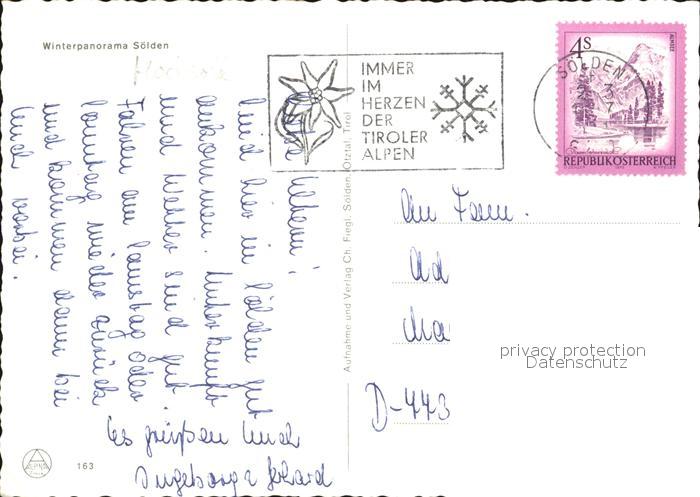 Winterpanorama Sölden
Liebe Eltern!
Sind hier in Sölden gut
ankommen. Unterkunft
und Wetter sind gut.
Fahren am Samstag oder
Sonntag wieder zurück
und kommen dann bei
Euch vorbei.
Es grüßen Euch
Ingeborg & Gerhard
163
Aufnahme und Verlag Ch. Fiegl, Sölden, Ötztal, Tirol
IMMER
IM
HERZEN
DER
TIROLER
ALPEN
SÖLDEN
4S
ALMSEE
REPUBLIK ÖSTERREICH
An Fam.
D-443
privacy protection
Datenschutz